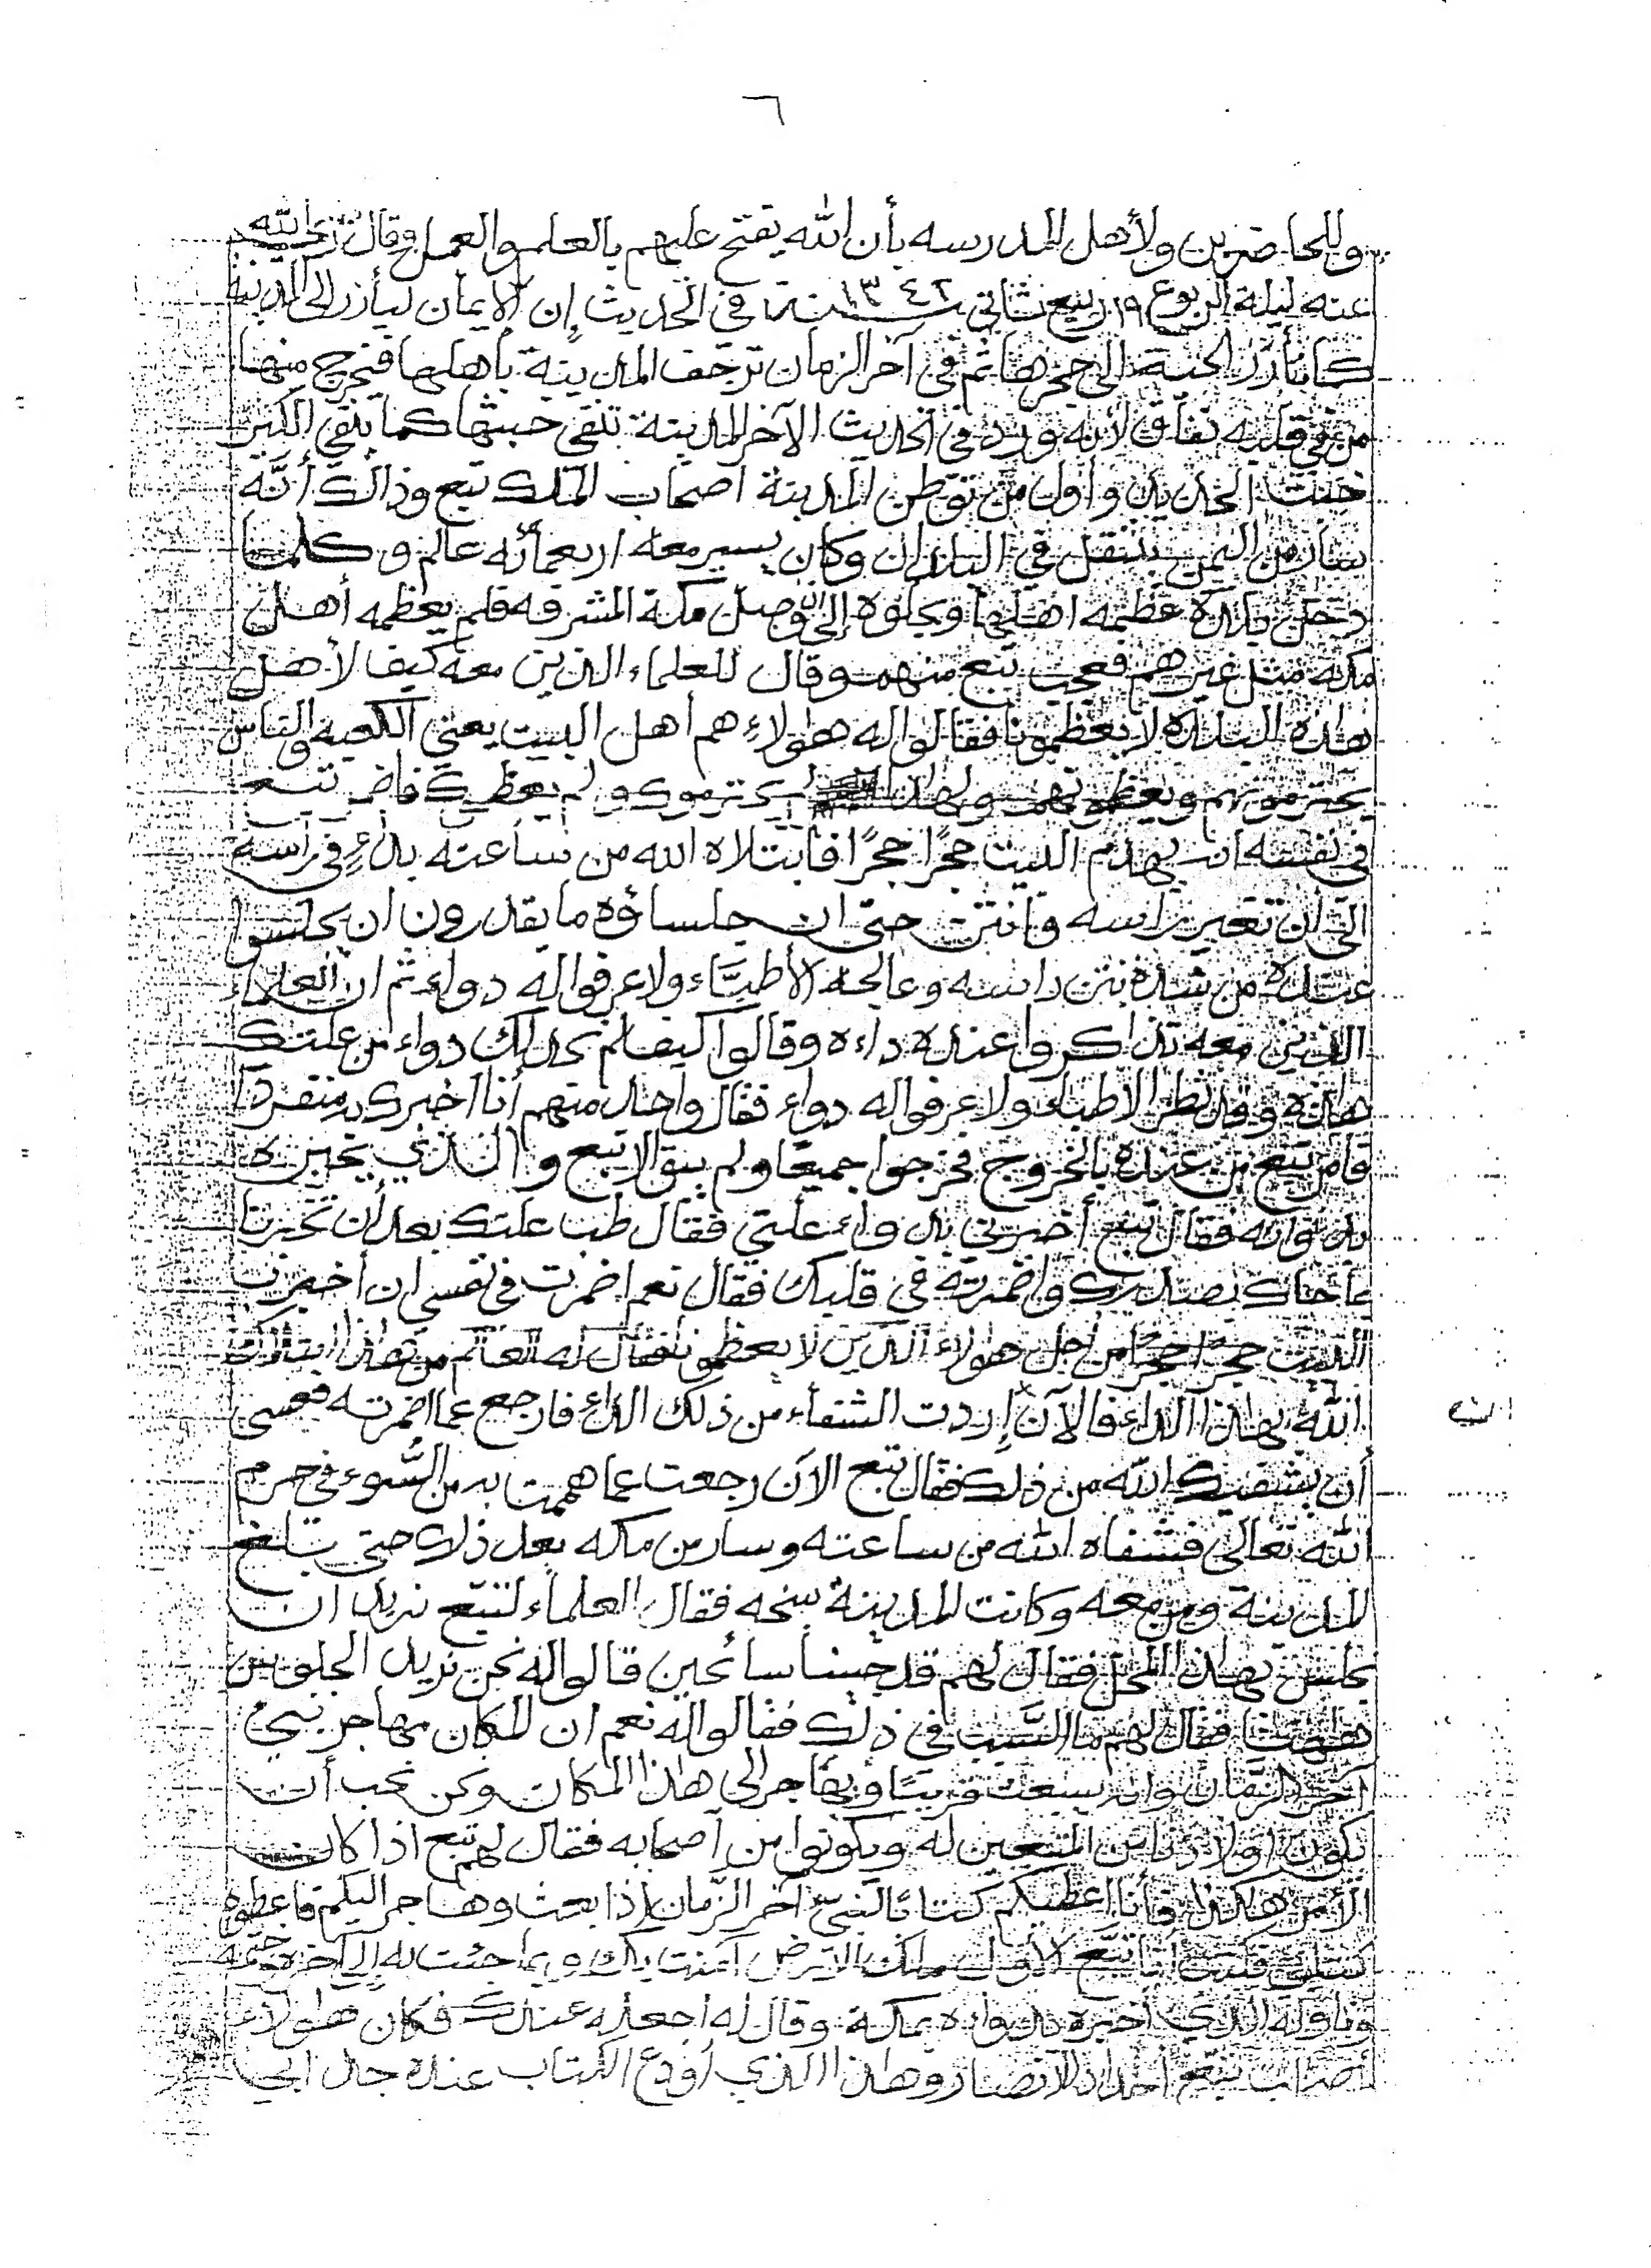 ٦
وللحاضرين ولأهل المدرسه بأن الله يفتح عليهم بالعلم والعمل وقال رضي الله
عنه ليلة الربوع ١٩ ربيع ثاني سنة ١٣٤٢ في الحديث إن الإيمان ليأزر إلى المدينة
كما تأرز الحية إلى جحرها ثم في آخر الزمان ترجف المدينة بأهلها فيخرج منها
من في قلبه نفاق لأنه ورد في الحديث الآخر المدينة تنفي خبثها كما ينفي الكير
خبث الحديد وأول من توطن المدينة اصحاب الملك تبع وذالك أنّه
سار من اليمن يتنقل في البلدان وكان يسير معه اربعمائه عالم وكلما
دخل بلدة عظمه اهلها ويجلوه إلى ان وصل مكة المشرفه فلم يعظمه أهل
مكه مثل غيرهم فعجب تبع منهم وقال للعلماء الذين معه كيف لأهل
هذه البلدة لا يعظمونا فقالوا له هؤلاءِ هم أهل البيت يعني الكعبه والناس
يحترمونهم ويعظمونهم ولهذا لم يحترموك ولم يعظموك فاضمر تبع
في نفسه انه يهدم البيت حجرًا حجرًا فابتلاه الله من ساعته بداءٍ في راسه
الى ان تغير راسه وانتن حتى ان جلساؤه ما يقدرون ان يجلسوا
عنده من شدة نتن راسه وعالجه الأطبَّاء ولا عرفوا له دواء ثم ان العلماء
الذين معه تذاكروا عنده داءه وقالوا كيف لم نجد لك دواء من علتك
هذه وقد نظر الاطباء ولا عرفوا له دواء فقال واحد منهم أنا اخبرك به منفردا
فامر تبع من عنده بالخروج فخرجوا جميعًا ولم يبق الا تبع والذي يخبره
بدوائه فقال تبع أخبرني بدواء علتي فقال طب علتك بعد أن تخبرنا
بما حاك بصدرك واضمرته في قلبك فقال نعم اضمرت في نفسي ان أخرب
البيت حجرًا حجرًا من أجل هؤلاء الذين لا يعظمونا فقال له العالم من هذا ابتلاك
الله بهذا الداء فالآن إن اردت الشفاء من ذلك الداء فارجع عما اضمرته فعسى
أن يشفيك الله من ذلك فقال تبع الآن رجعت عما هممت به من السُّوء في حرم
الله تعالى فشفاه الله من ساعته وسار من مكه بعد ذلك حتى بلغ
المدينة ومن معه وكانت المدينة سبخه فقال العلماء لتبّع نريد ان
نجلس بهذا المحل فقال لهم قد جينا سائحين قالوا له نحن نريد الجلوس
هاهنا فقال لهم ما السَّبب في ذلك فقالوا له نعم ان المكان مهاجر نبيّ
آخر الزمان وانه يبعث قريبًا ويهاجر الى هذا المكان ونحن نحب أن
يكون اولادنا من المتبعين له ويكونوا من أصحابه فقال لهم تبع اذا كان
الأمر هكذا فأنا اعطيكم كتابًا لنبيّ آخر الزّمان إذا بعث وهاجر اليكم فاعطوه
كتابي فكتب أنا تبّع الأول ملك الارض آمنت بك وبما جئت به إلى آخره ختمه
وناوله الذي أخبره بدوائه بمكة وقال له اجعله عندك فكان هؤلاء
أصحاب تبّع أجداد الانصار وهذا الذي أودع الكتاب عنده جد أبي